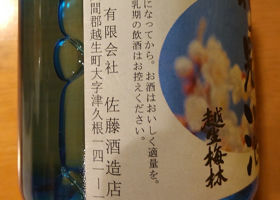 越生梅林
になってから。お酒はおいしく適量を。
乳期の飲酒はお控えください。
有限会社 佐藤酒造店
間郡越生町大字津久根一四一ー一